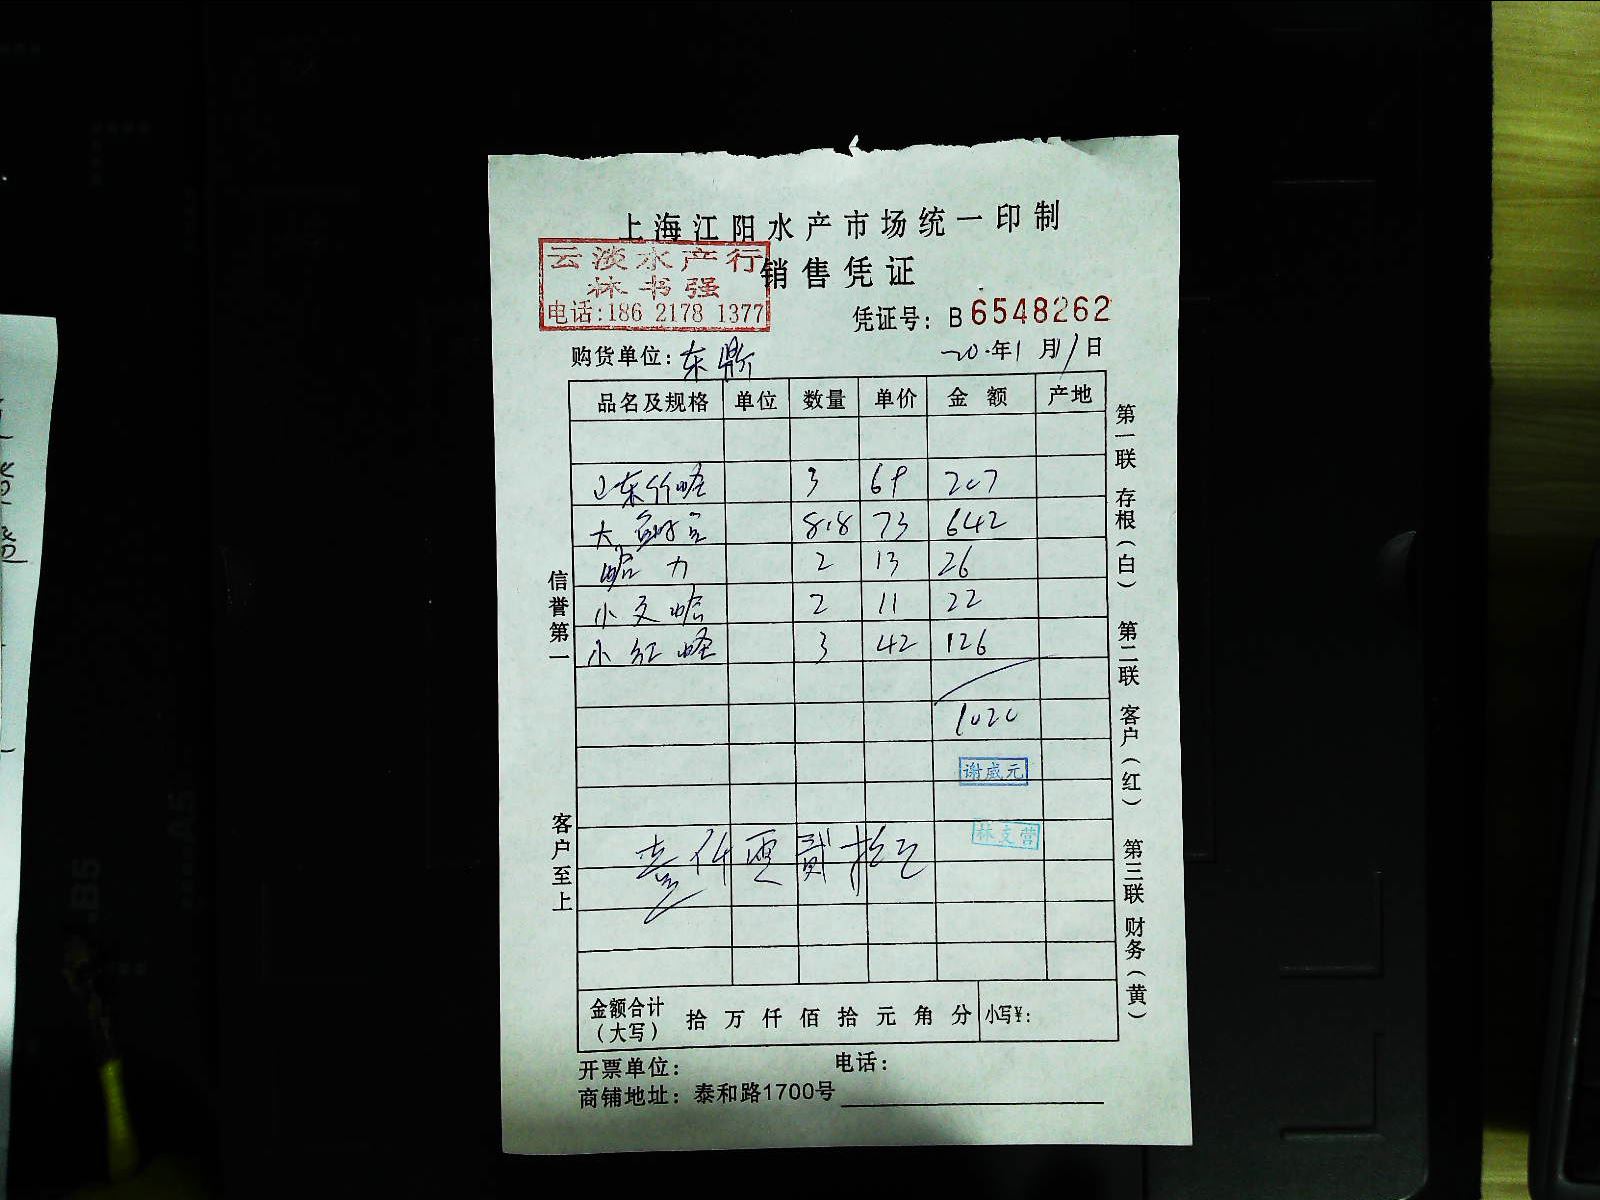 上海江阳水产市场统一印制
云淡水产行
林书强
电话:186 2178 1377
销售凭证
凭证号: B 6548262
购货单位: 东鼎
20.年1月11日
品名及规格 单位 数量 单价 金额 产地
山东竹蛏 3 69 207
大 8.8 73 642
蛤力 2 13 26
小文蛤 2 11 22
小红蛏 3 42 126
1020
谢威元
林支营
壹仟零贰拾元
金额合计(大写) 拾万仟佰拾元角分 小写¥:
开票单位: 电话:
商铺地址: 泰和路1700号
信誉第一
客户至上
第一联 存根(白) 第二联 客户(红) 第三联 财务(黄)